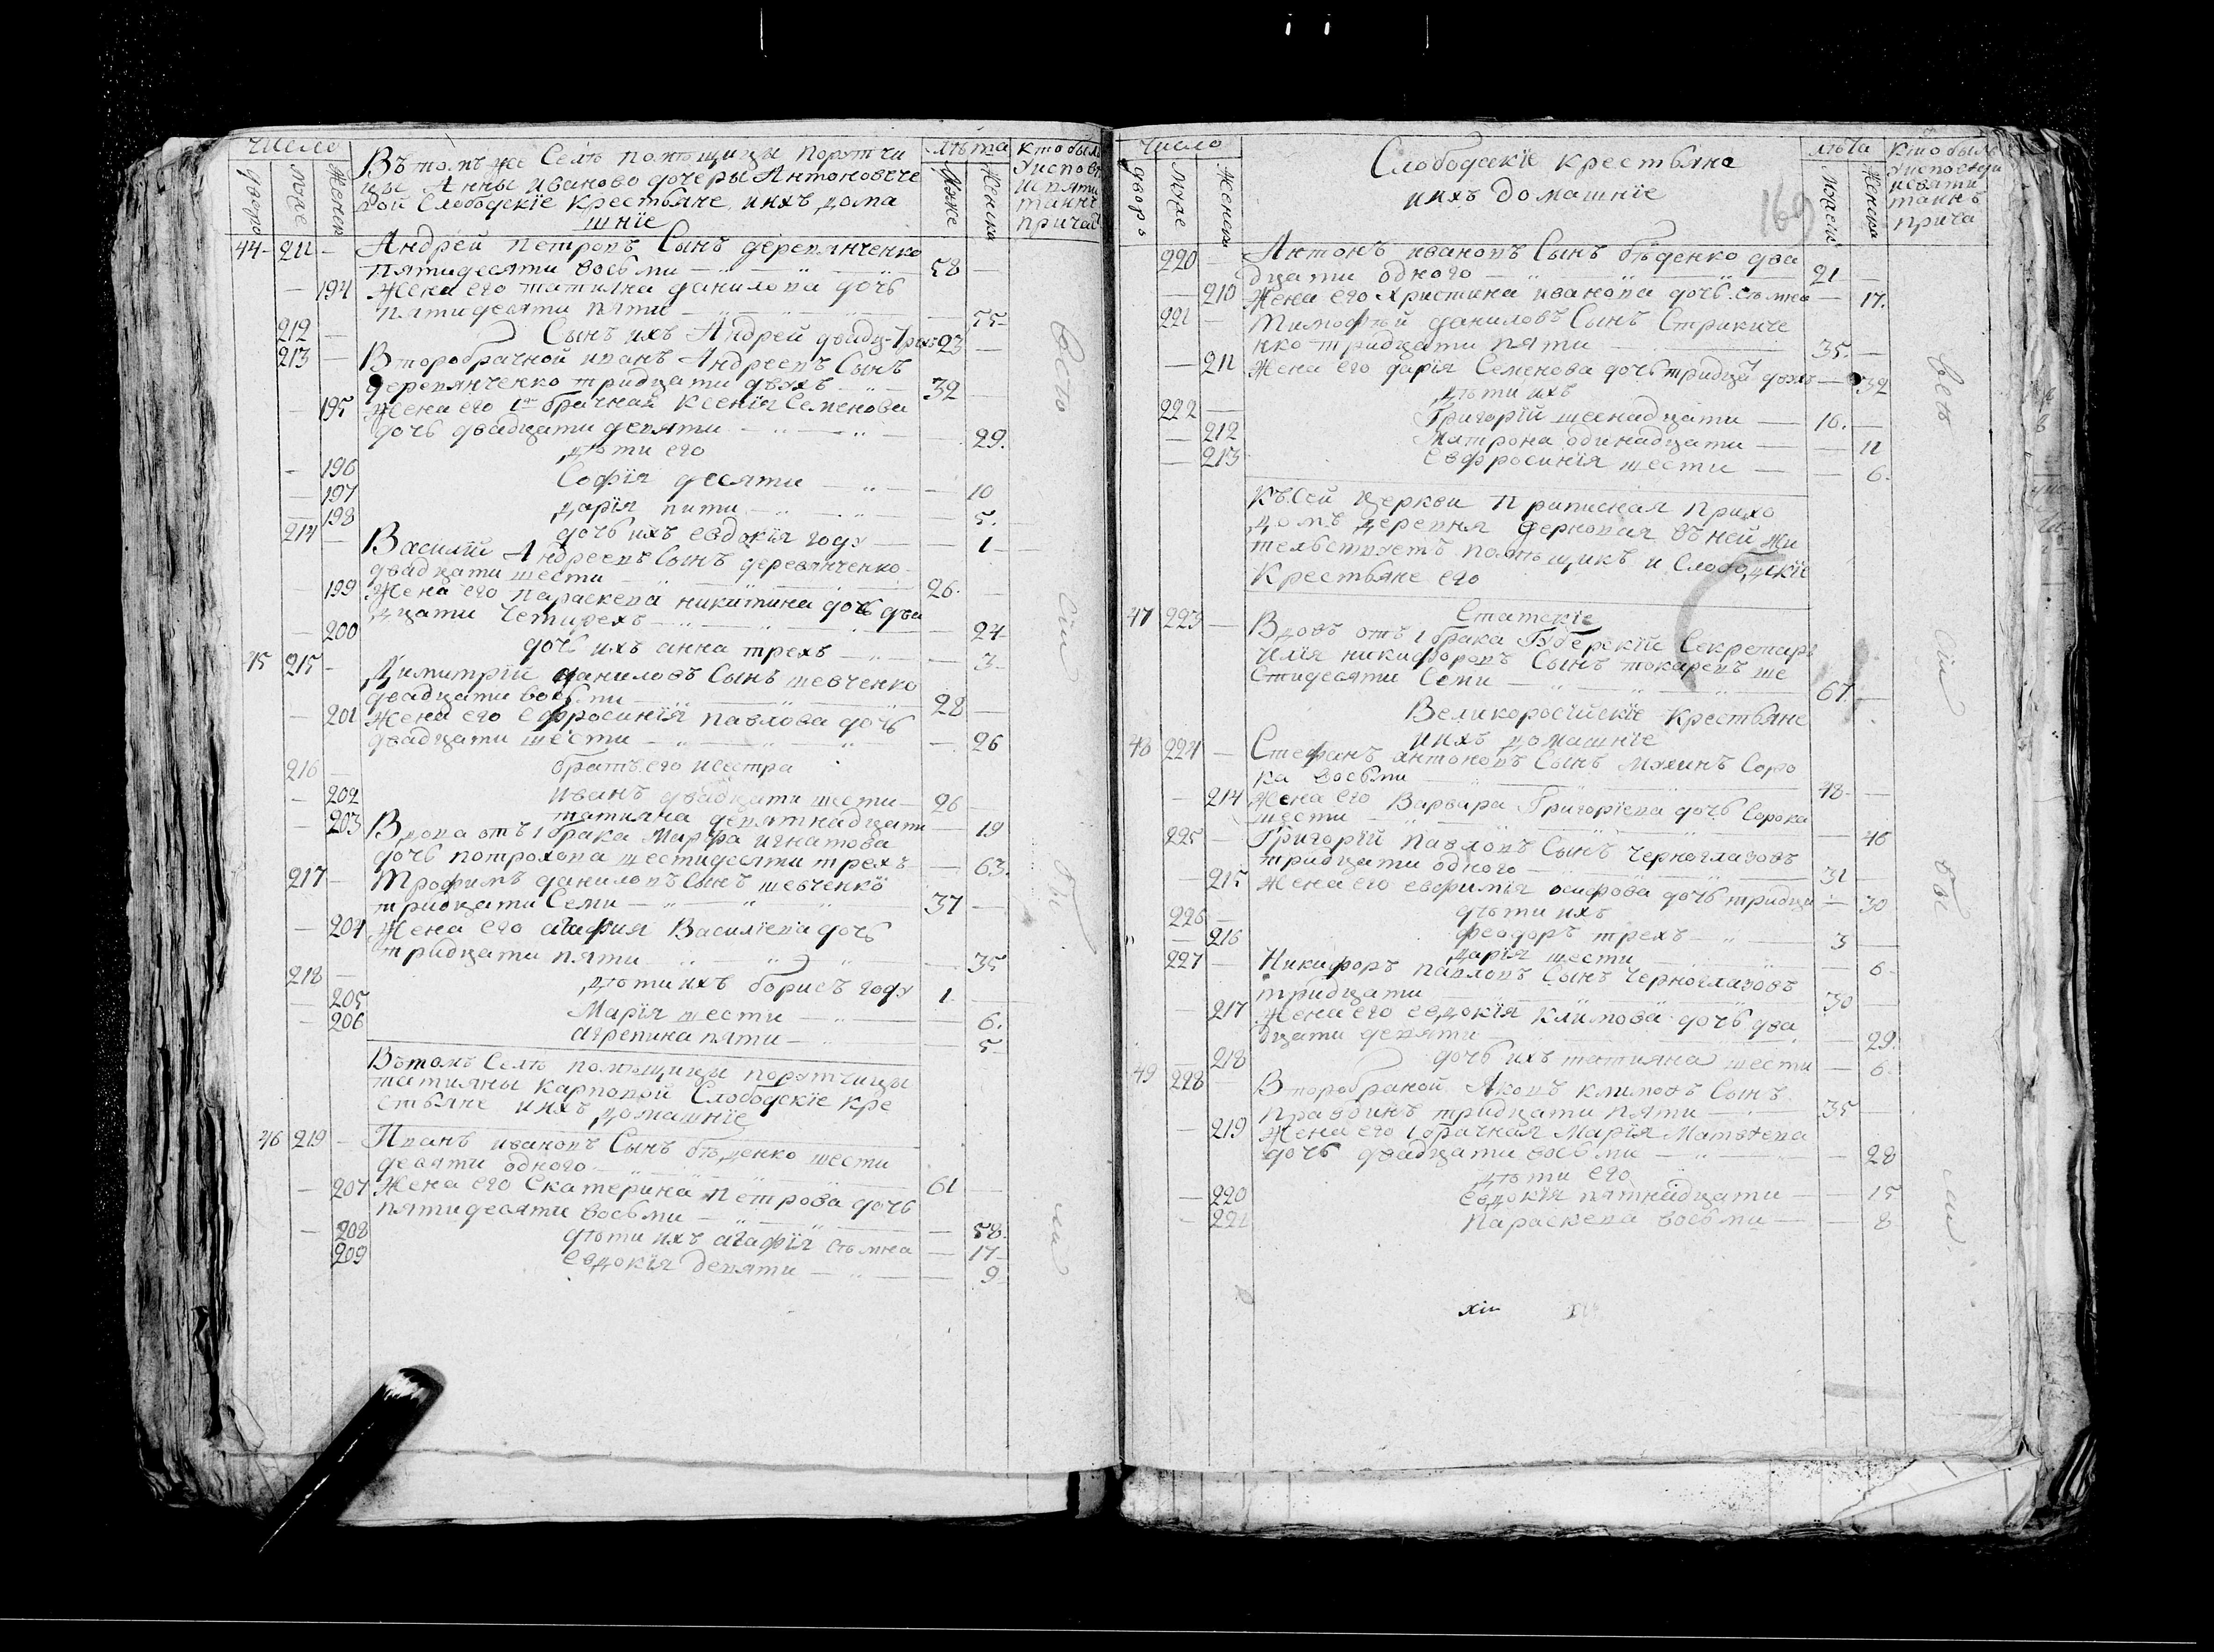 Число
лѣта
кто былъ
Дворо
Муже
Женск
Муже
Женска
Въ томъ же Селѣ помѣщицы порутчи
цы Анны иваново дочеры Антоновиче
вой Слободскïе Крестьяне ихъ дома
шнïе
44 211 Андрей Петровъ Сынъ деревянченко
пятидесяти восьми 58
194 Жена его татияна данилова дочь
пятидесяти пяти 55
212 Сынъ ихъ Андрей двадц. трих 23
213 Второбрачной иванъ Андреевъ Сынъ
деревянченко тридцати двухъ 32
195 Жена его 1 брачная Ксенïя Семенова
дочь двадцати девяти 29.
дѣти его
196 Софïя десяти 10
197 дарïя пяти 5.
198 дочь ихъ евдокïя году 1
214 Василïй Андреевъ Сынъ деревянченко
двадцати шести 26.
199 Жена его параскева никитина дочь два
дцати Четирехъ 24
200 дочь ихъ анна трехъ 3
45 215 Димитрïй даниловъ Сынъ шевченко
двадцати восьми 28
201 Жена его ефросинïя павлова дочь
двадцати шести 26
братъ его исестра
216 иванъ двадцати шести 26
202 татияна девятнадцати 19
203 Вдова отъ 1 брака Марфа игнатова
дочь потрохова шестидесяти трехъ 63.
217 Трофимъ даниловъ Сынъ шевченко
тридцати Семи 37
204 Жена его агафия Василïева дочь
тридцати пяти 35
218 дѣти ихъ борисъ году 1
205 Марïя шести 6.
206 агрепина пяти 5
Вътомъ Селѣ помѣщицы порутчицы
татияны Карповой Слободскïе кре
стьяне ихъ домашнïе
46 219 Иванъ ивановъ Сынъ бѣденко шести
десяти одного 61
207 Жена его Екатерина петрова дочь
пятидесяти восьми 58.
208 дѣти ихъ агафïя сѣмна 17
209 евдокïя девяти 9
Всѣ
Сïи
бы
ли
Число
Слободскïе крестьяне
ихъ домашнïе
169
лѣта
Дворъ
Муже
Женск
Женска
220 Антонъ ивановъ Сынъ бѣденко два
дцати одного 21
210 Жена его христина иванова дочь сѣмна 17.
221 Тимофѣй даниловъ Сынъ Стрикиче
нко тридцати пяти 35.
211 Жена его дарïя Семенова дочь тридца двох 32
дѣти ихъ
222 Григорïй шеснадцати 16.
212 Матрона одинадцати 11
213 евфросинïя шести 6.
Къ сей Церкви Приписная прихо
домъ деревня дерновая въ ней жи
тельствуетъ помѣщикъ и Слободскïе
Крестьяне его
Статскïе
47 223 Вдовъ отъ 1 брака Губерскïй Секретарь
илïя никифоровъ Сынъ токаревъ ше
стидесяти Семи 67.
Великоросïйскïе Крестьяне
ихъ домашнïе
48 224 Стефанъ антоновъ Сынъ Мухинъ Соро
ка восьми 48
214 Жена его Варвара Григорïева дочь Сорока
шести 46
225 Григорïй павловъ Сынъ Черноглазовъ
тридцати одного 31
215 Жена его евфимïя осифова дочь тридца 30
дѣти ихъ
226 феодоръ трехъ 3
216 дарïя шести 6
227 Никифоръ павловъ Сынъ Черноглазовъ
тридцати 30
217 Жена его евдокïя климова дочь два
дцати девяти 29.
218 дочь ихъ татияна шести 6.
49 228 Второбраной Яковъ климовъ Сынъ
Правдинъ тридцати пяти 35
219 Жена его 1 брачная Марïя Матвѣева
дочь двадцати восьми 28
дѣти его
220 евдокïя пятнадцати 15
221 параскева восьми 8
Всѣ
Сïи
бы
ли.